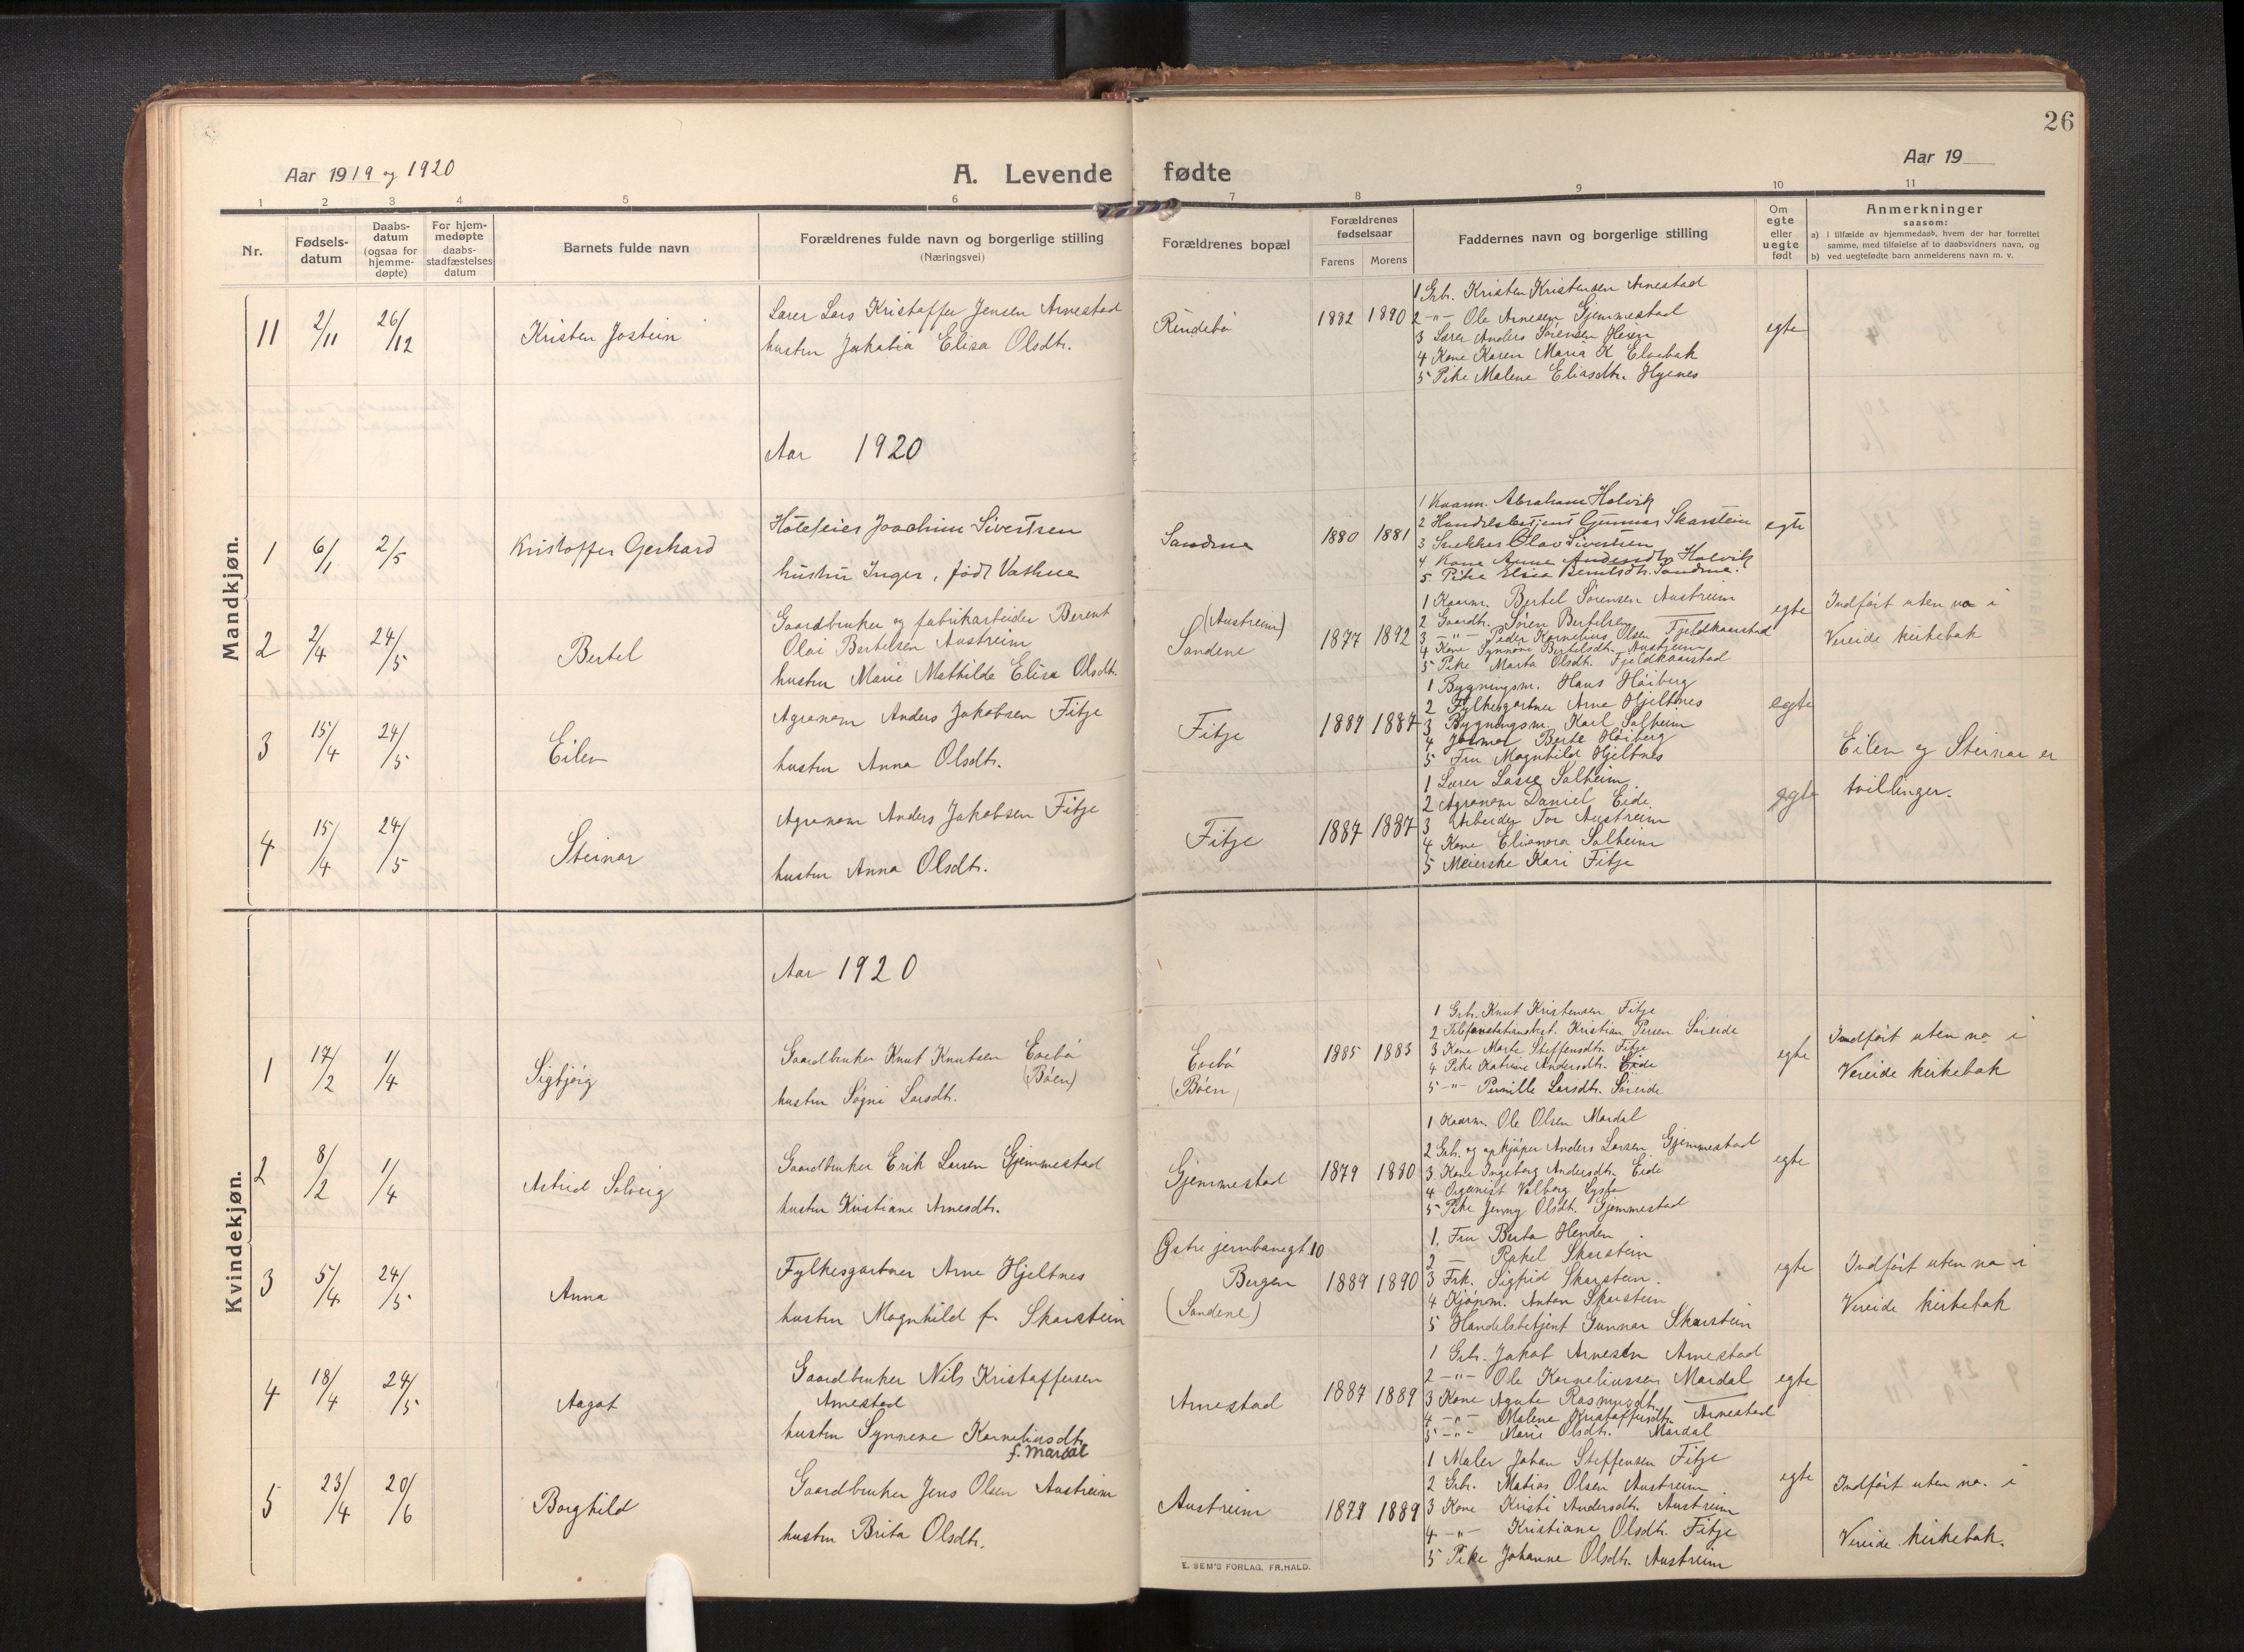 26
Aar 1919 og 1920
A. Levende fødte
Aar 19
1 2 3 4 5 6 7 8 9 10 11
Nr.
Fødsels-
datum
Daabs-
datum
(ogsaa for
hjemme-
døpte)
For hjem-
medøpte
daabs-
stadfæstelses
datum
Barnets fulde navn
Forældrenes fulde navn og borgerlige stilling
(Næringsvei)
Forældrenes bopæl
Forældrenes
fødselsaar
Farens Morens
Faddernes navn og borgerlige stilling
Om
egte
eller
uegte
født
Anmerkninger
saasom:
a) i tilfælde av hjemmedaab, hvem der har forrettet
samme, med tilføielse af to daabsvidners navn, og
b) ved uegtefødte barn anmelderens navn m. v.
Mandkjøn.
11 2/11 26/12 Kristen Jostein
Lærer Lars Kristoffer Jensen Arnestad
hustru Jakobia Elisa Olsdtr.
Rindebø
1882 1890
1 Grbr. Kristen Kristensen Arnestad
2 -"- Ole Arnesen Gjemmestad
3 Lærer Anders Sørensen
4 Kone Karen Maria K Elvebak
5 Pike Malene Eliasdtr. Hyenes
egte
Aar 1920
1 6/1 2/5 Kristoffer Gerhard
Joachim Sivertsen
hustru Inger, født Vathne
Sandene
1880 1881
1 Kaarm. Abraham Holvik
2 Handelsbetjent Gunnar Skarstein
3 Snekker Olav Sivertsen
4 Kone Anne Andersdtr Holvik
5. Pike Elisa Berntsdtr. Sandene.
egte
2 2/4 24/5 Bertel
Gaardbruker og fabrikarbeider Berent
Olai Bertelsen Austreim
hustru Marie Mathilde Elisa Olsdtr.
(Austreim)
Sandene
1877 1892
1 Kaarm. Bertel Sørensen Austreim
2 Gaardbr. Søren Bertelsen
3 -"- Peder Kornelius Olsen Fjeldkaarstad
4 Kone Synnøve Bertelsdtr. Austreim
5 Pike Marta Olsdtr. Fjeldkaarstad
egte
Indført uten no i
Vereide kirkebok
3 15/4 24/5 Eilev
Agronom Anders Jakobsen Fitje
hustru Anna Olsdtr.
Fitje
1887 1887
1 Bygningsm. Hans Høiberg
2 Fylkesgartner Arne Hjeltnes
3 Bygningsm. Karl Solheim
4 Jormor Berte Høiberg
5 Fru Magnhild Hjeltnes
egte
Eilev og Steinar er
tvillinger.
4 15/4 24/5 Steinar
Agronom Anders Jakobsen Fitje
hustru Anna Olsdtr.
Fitje
1887 1887
1 Lærer Lasse Solheim
2 Agronom Daniel Eide
3 Arbeider Tor Austreim
4 Kone Elianora Solheim
5 Meierske Kari Fitje
egte
Kvindekjøn.
Aar 1920
1 17/2 1/4 Sigbjørg
Gaardbruker Knut Knutsen Evebø
(Bøen)
hustru Søgni Larsdtr.
Evebø
(Bøen)
1885 1883
1 Grbr. Knut Kristensen Fitje
2 Telefonstationsbest. Kristian Persen Søreide
3 Kone Marte Steffensdtr. Fitje
4 Pike Katrine Andersdtr. Eide
5 -"- Pernille Larsdtr. Søreide
egte
Indført uten no i
Vereide kirkebok
2 8/2 1/4 Astrid Solveig
Gaardbruker Erik Larsen Gjemmestad
hustru Kristiane Arnesdtr.
Gjemmestad
1879 1880
1 Kaarm. Ole Olsen Mardal
2 Grbr. og opkjøper Anders Larsen Gjemmestad
3 Kone Ingeborg Andersdtr. Eide
4 Organist Valborg Lysfo
5 Pike Jenny Olsdtr. Gjemmestad
egte
3 5/4 24/5 Anna
Fylkesgartner Arne Hjeltnes
hustru Magnhild f. Skarstein
Østre jernbanegt. 10
Bergen
(Sandene)
1889 1890
1. Fru Berta Henden
2 — Rakel Skarstein
3 Frk. Sigfrid Skarstein.
4 Kjøpm. Anton Skarstein
5 Handelsbetjent Gunnar Skarstein
egte
Indført uten no i
Vereide kirkebok
4 18/4 24/5 Aagot
Gaardbruker Nils Kristoffersen
Arnestad
hustru Synneve Korneliusdtr.
f. Mardal
Arnestad
1887 1889
1 Grbr. Jakob Arnesen Arnestad
2 -"- Ole Korneliussen Mardal
3 Kone Agnete Rasmusdtr.
4 -"- Malene Kristoffersdtr. Arnestad
5 -"- Marie Olsdtr. Mardal
egte
5 23/4 20/6 Borghild
Gaardbruker Jens Olsen Austreim
hustru Brita Olsdtr.
Austreim
1879 1889
1 Maler Johan Steffensen Fitje
2 Grbr. Matias Olsen Austreim
3 Kone Kristi Andersdtr. Austreim
4 -"- Kristiane Olsdtr. Fitje
5 Pike Johanne Olsdtr. Austreim
egte
Indført uten no. i
Vereide kirkebok.
E. SEM'S FORLAG. FR.HALD.